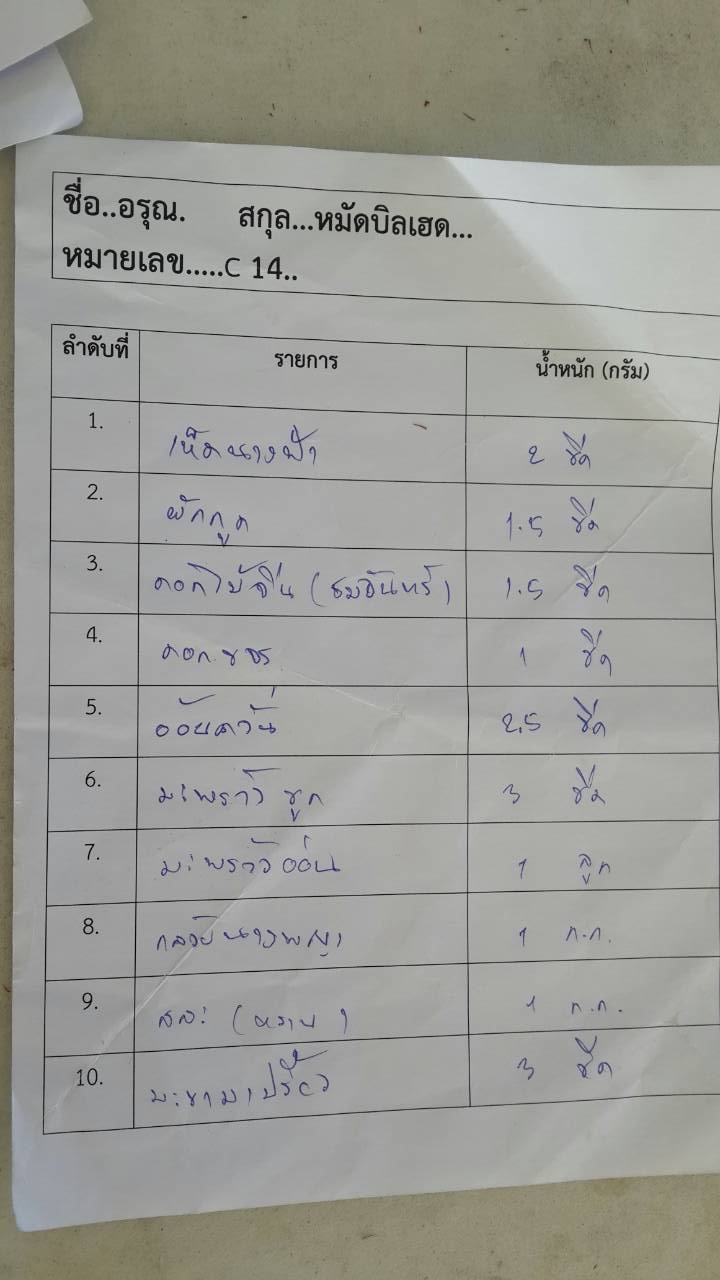 ชื่อ..อรุณ. สกุล...หมัดบิลเฮด...
หมายเลข.....C 14..
ลำดับที่ รายการ น้ำหนัก (กรัม)
1. เห็ดนางฟ้า 2 ขีด
2. ผักกูด 1.5 ขีด
3. ดอกไม้จีน (ธมจันทร์) 1.5 ขีด
4. ดอกขจร 1 ขีด
5. อ้อยควั่น 2.5 ขีด
6. มะพร้าว ขูด 3 ขีด
7. มะพร้าวอ่อน 1 ลูก
8. กล้วยนางพญา 1 ก.ก.
9. สละ (หวาน) 1 ก.ก.
10. มะขามเปรี้ยว 3 ขีด